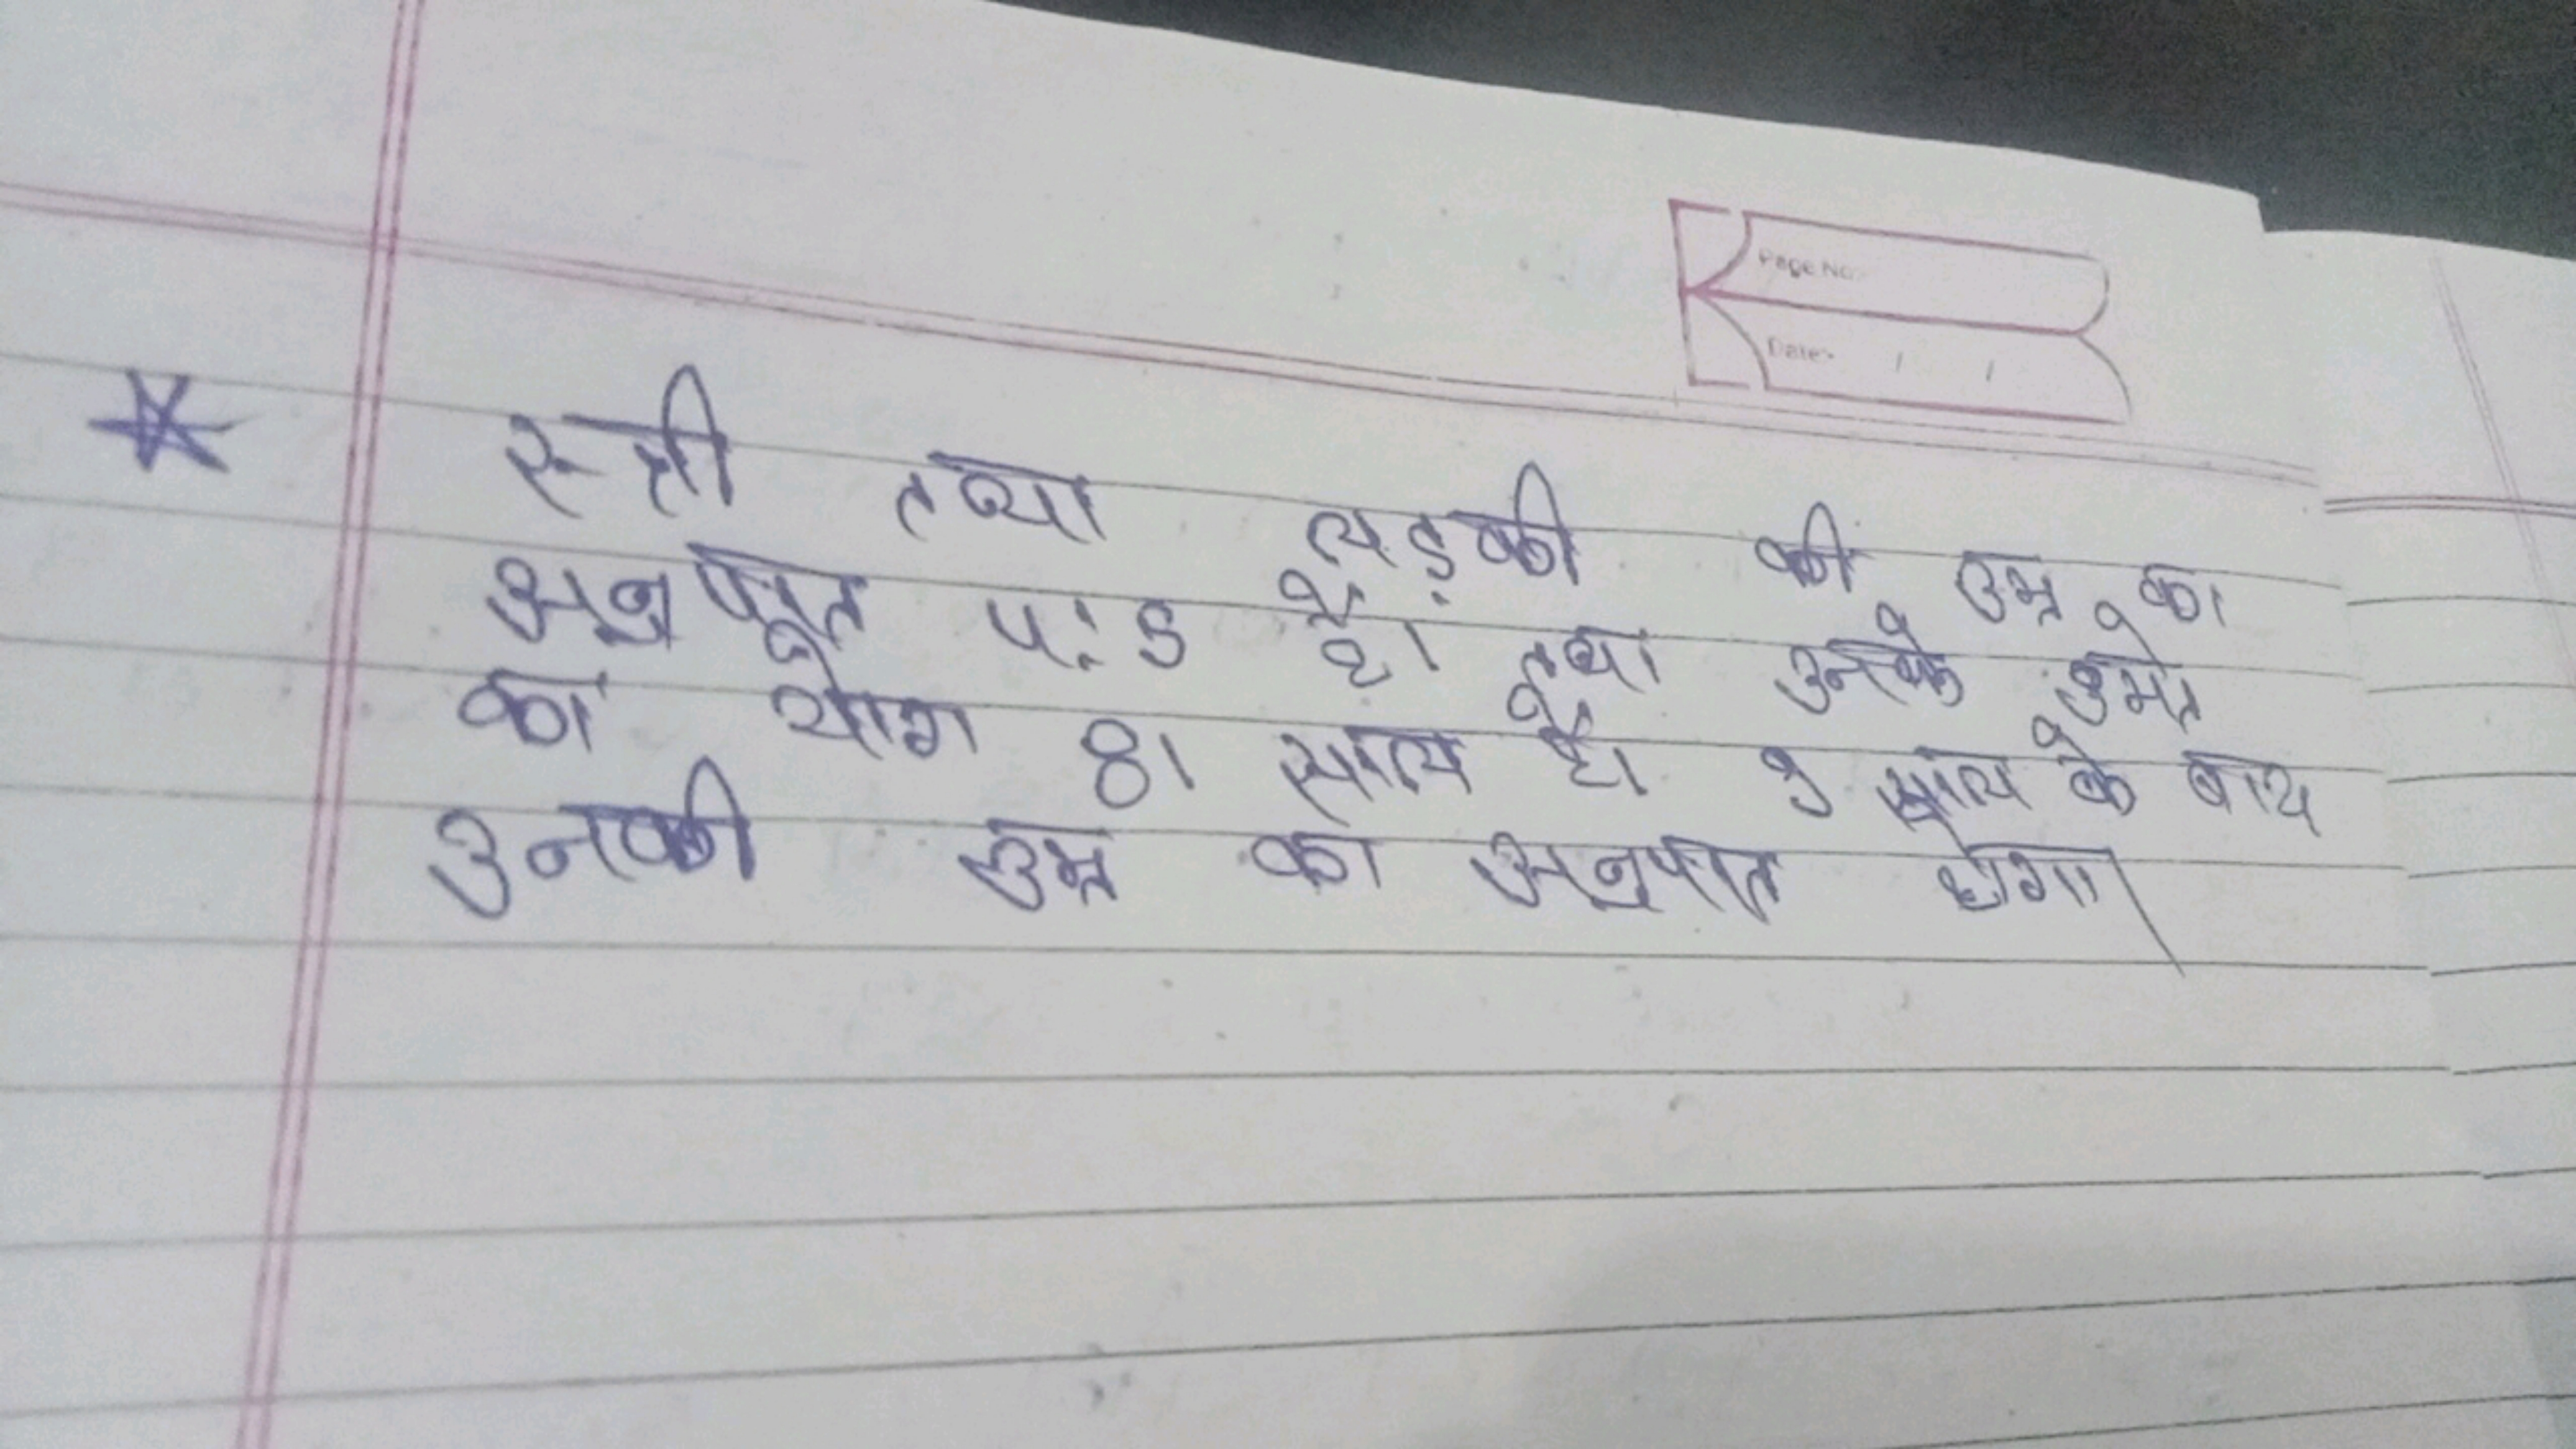 Page No:-
Date:- / /
स्त्री तथा लड़की की उम्र का
अनुपात 4:5 है। तथा उनके उम्रो
का योग 81 साल है। 9 साल के बाद
उनकी उम्र का अनुपात होगा